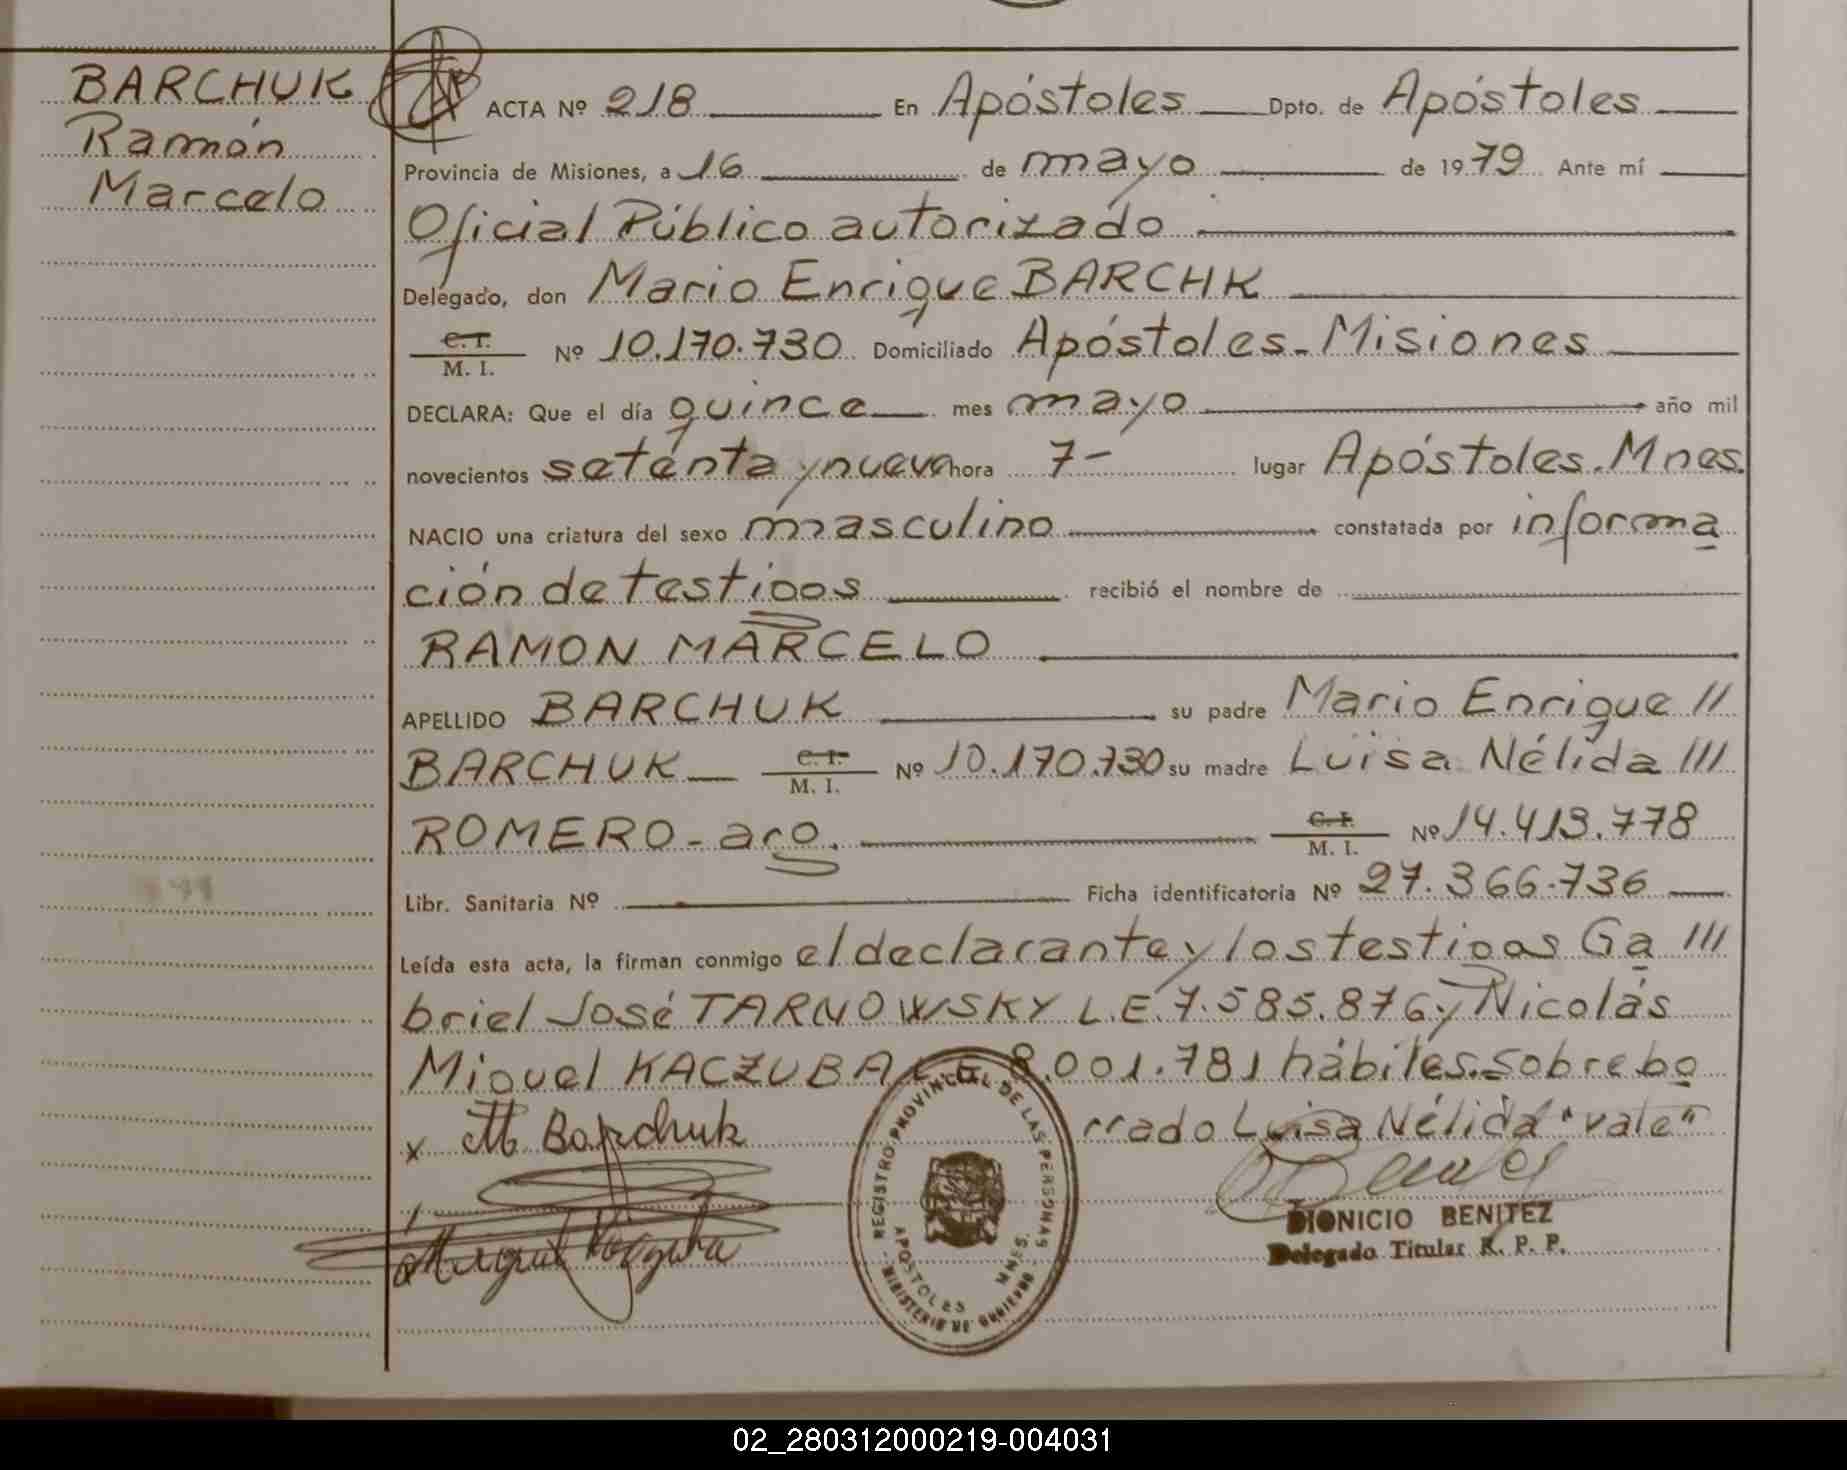 BARCHUK
Ramón
Marcelo
ACTA Nº 218 En Apóstoles Dpto. de Apóstoles
Provincia de Misiones, a 16 de mayo de 1979 Ante mí
Oficial Público autorizado
Delegado, don Mario Enrique BARCHK
C.I. M. I. Nº 10.170.730 Domiciliado Apóstoles - Misiones
DECLARA: Que el día quince mes mayo año mil
novecientos setenta y nueve hora 7- lugar Apóstoles. Mnes.
NACIO una criatura del sexo masculino constatada por informa
ción de testigos recibió el nombre de
RAMON MARCELO
APELLIDO BARCHUK su padre Mario Enrique //
BARCHUK C. I. M. I. Nº 10.170.730 su madre Luisa Nélida ///
ROMERO - arg. C. I. M. I. Nº 14.413.778
Libr. Sanitaria Nº Ficha identificatoria Nº 27.366.736
Leída esta acta, la firman conmigo el declarante y los testigos Ga ///
briel José TARNOWSKY L.E. 7.585.876 y Nicolás
Miguel KACZUBA L.E. 8.001.781 hábiles. Sobre bo
x M Barchuk rrado Luisa Nélida "vale"
REGISTRO PROVINCIAL DE LAS PERSONAS
APOSTOLES MNES.
MINISTERIO DE GOBIERNO
DIONICIO BENITEZ
Delegado Titular R. P. P.
02_280312000219-004031